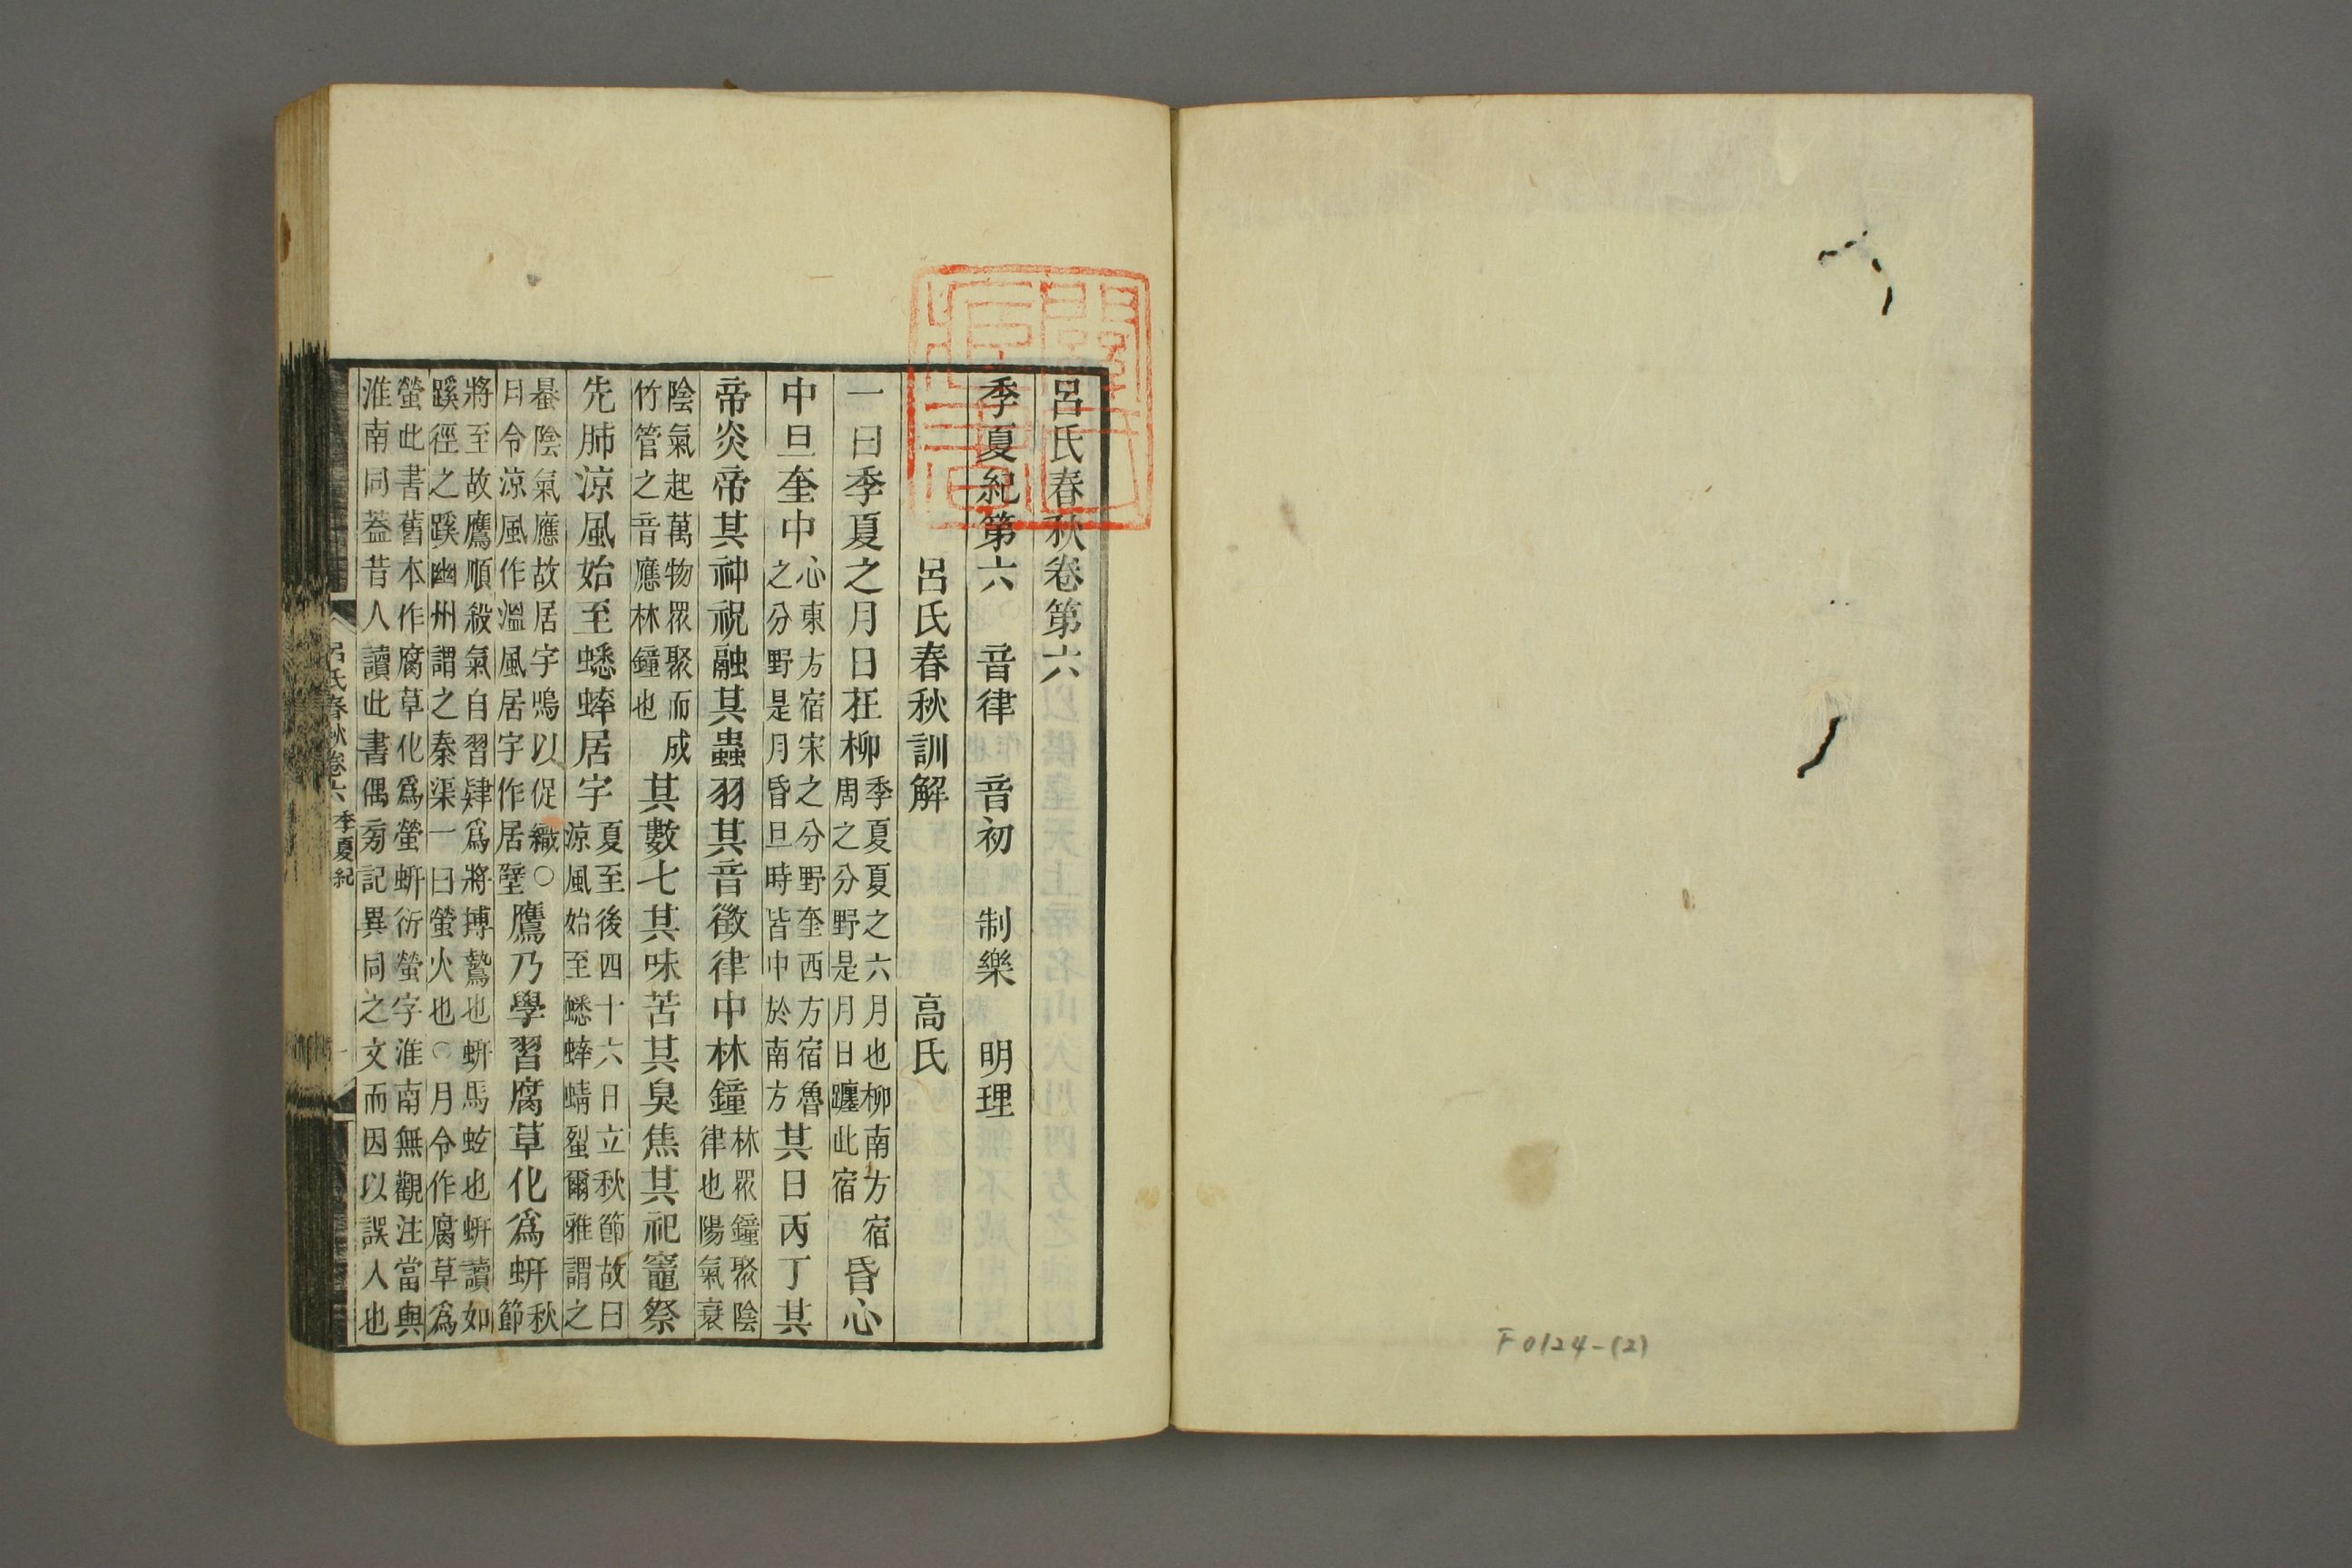 呂氏春秋卷第六
季夏紀第六 音律 音初 制樂 明理
呂氏春秋訓解 高氏
一曰季夏之月日在柳季夏夏之六月也柳南方宿周之分野是月日躔此宿昏心
中旦奎中心東方宿宋之分野奎西方宿魯之分野是月昏旦時皆中於南方其日丙丁其
帝炎帝其神祝融其蟲羽其音徵律中林鐘林眾鐘聚陰律也陽氣衰
陰氣起萬物眾聚而成竹管之音應林鐘也其數七其味苦其臭焦其祀竈祭
先肺涼風始至蟋蟀居宇夏至後四十六日立秋節故曰涼風始至蟋蟀蜻蛚爾雅謂之
蛬陰氣應故居宇鳴以促織○月令涼風作溫風居宇作居壁鷹乃學習腐草化爲蚈秋節
將至故鷹順殺氣自習肄爲將搏鷙也蚈馬蚿也蚈讀如蹊徑之蹊幽州謂之秦渠一曰螢火也○月令作腐草爲
螢此書舊本作腐草化爲螢蚈衍螢字淮南無觀注當與淮南同葢昔人讀此書偶旁記異同之文而因以誤人也
呂氏春秋卷六 季夏紀 一
F0124-(2)